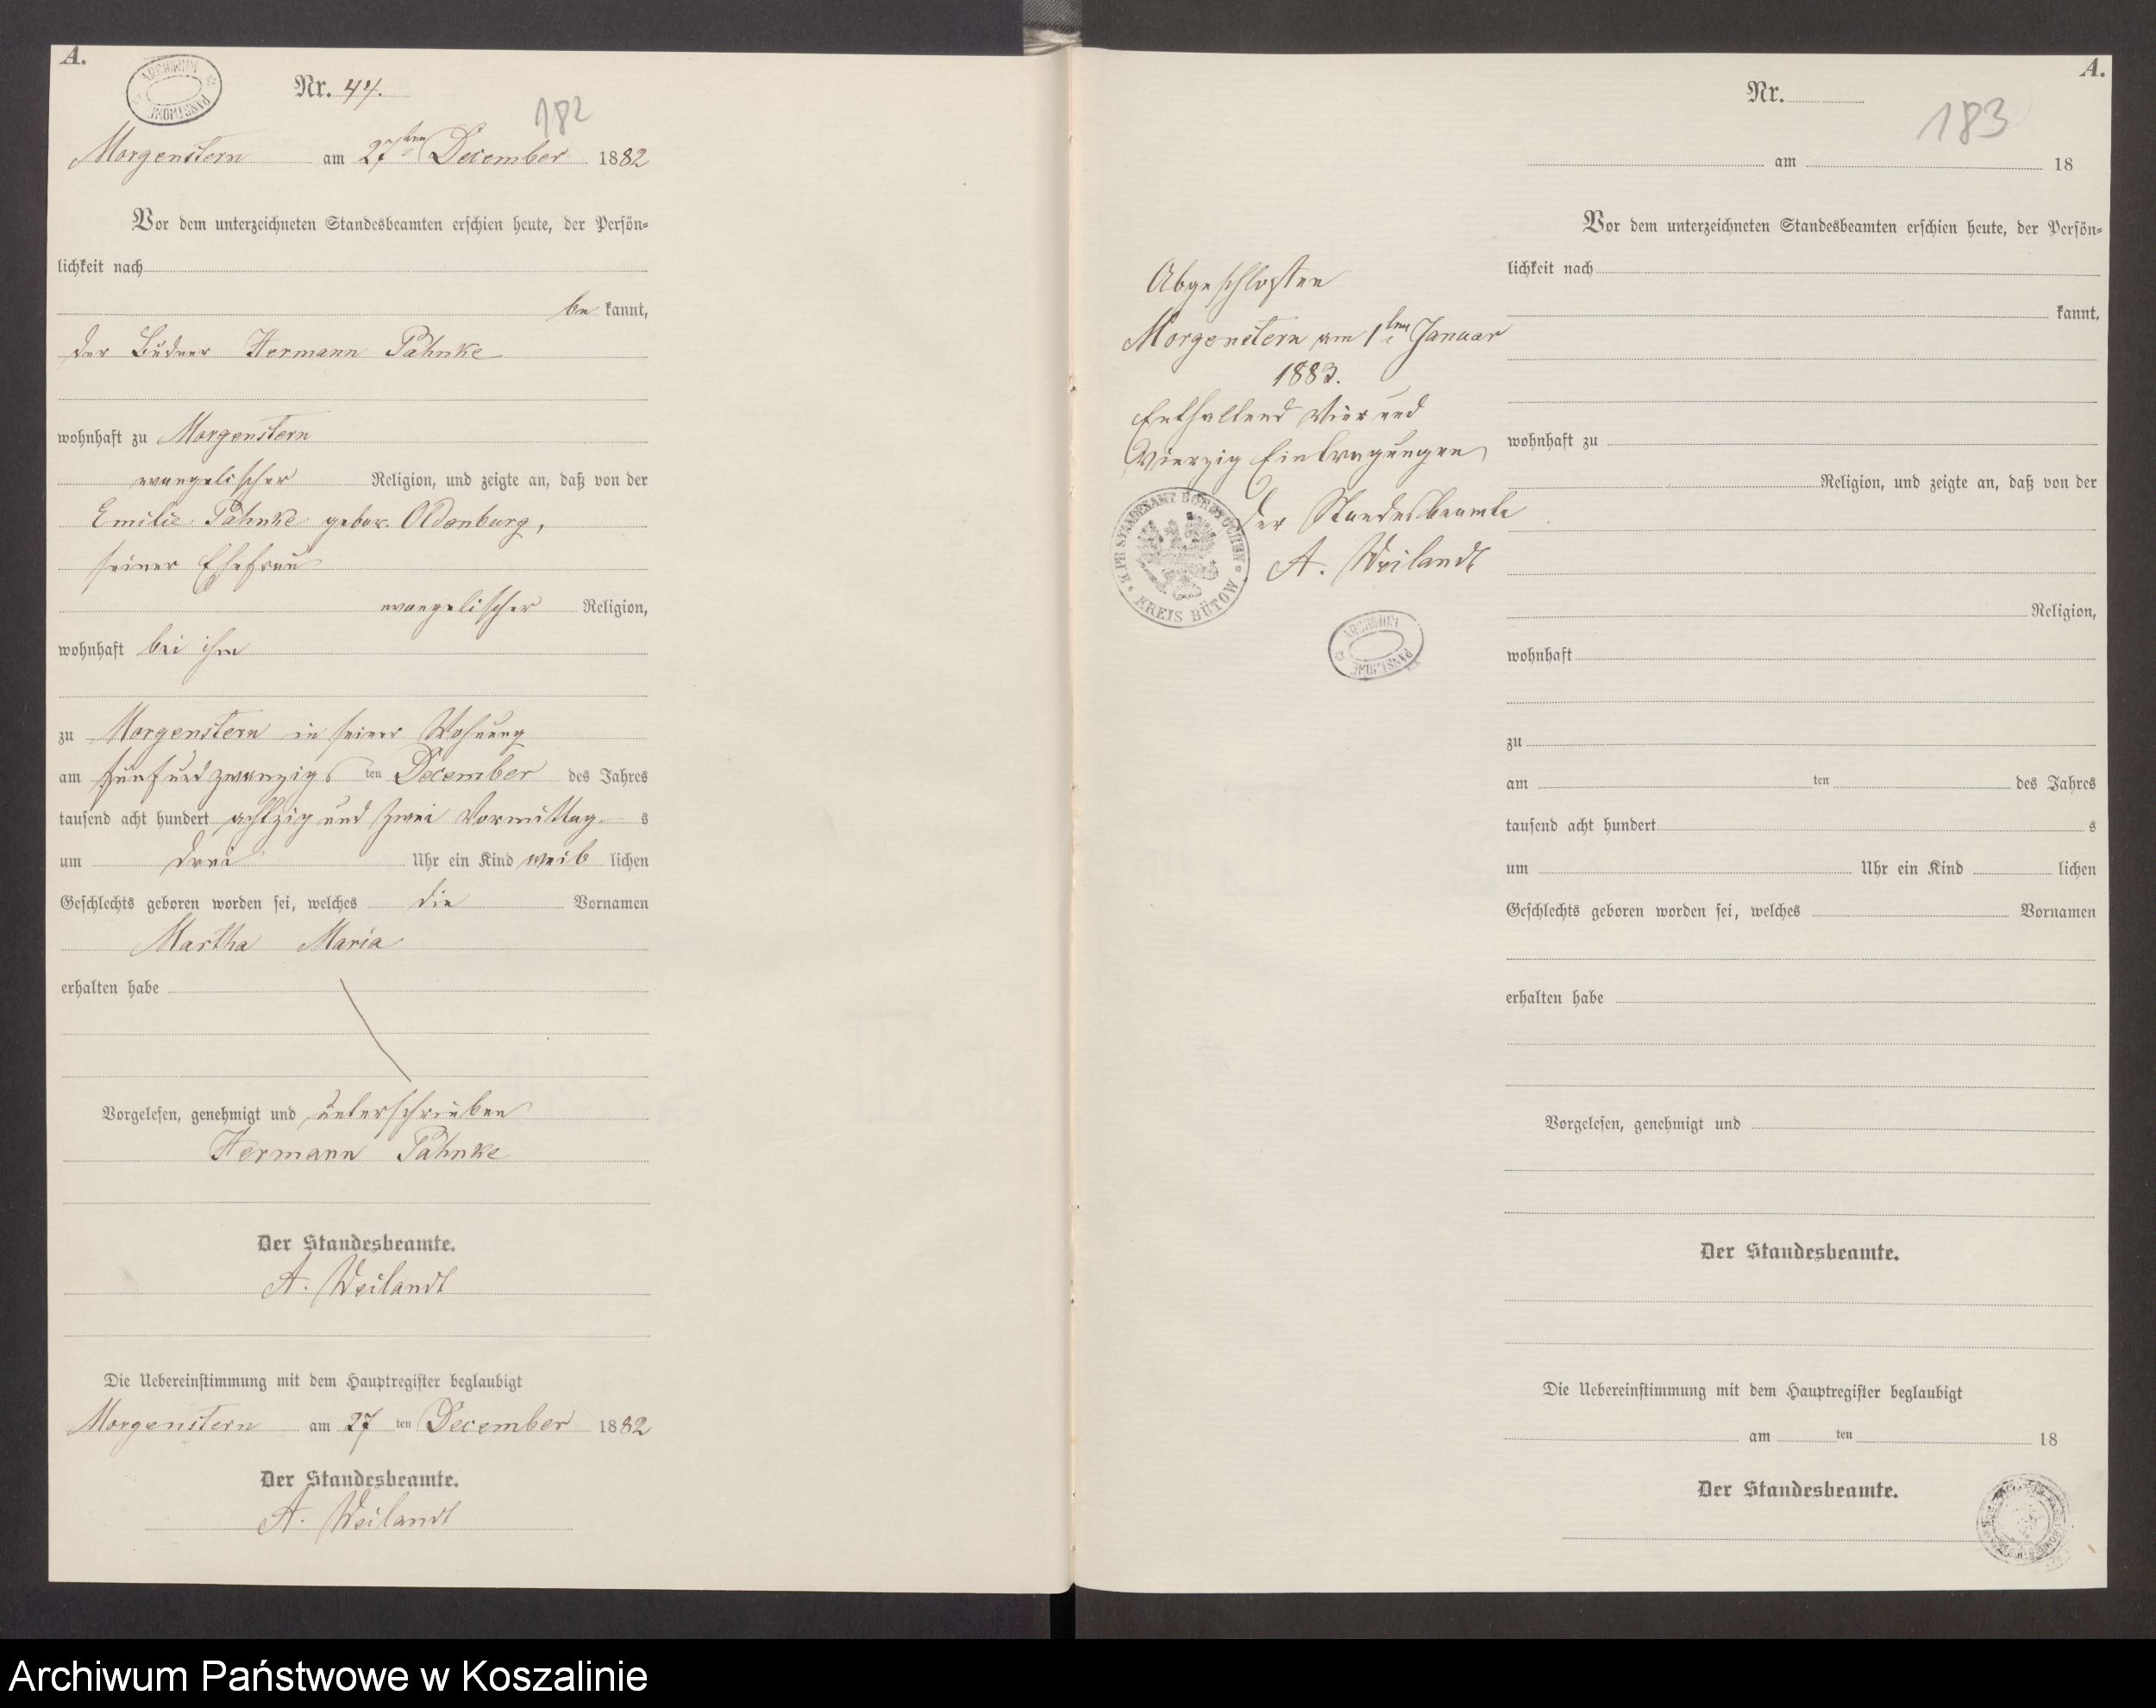 A.
ARCHIWUM PAŃSTWOWE
Nr. 44.
182
Morgenstern am 27ten December 1882
Vor dem unterzeichneten Standesbeamten erschien heute, der Persön-
lichkeit nach
be kannt,
der Büdner Hermann Pahnke
wohnhaft zu Morgenstern
evangelischer Religion, und zeigte an, daß von der
Emilie Pahnke gebor. Oldenburg,
seiner Ehefrau
evangelischer Religion,
wohnhaft bei ihm
zu Morgenstern in seiner Wohnung
am fünfundzwanzigsten December des Jahres
tausend acht hundert achtzig und zwei Vormittag s
um drei Uhr ein Kind weib lichen
Geschlechts geboren worden sei, welches die Vornamen
Martha Maria
erhalten habe
Vorgelesen, genehmigt und unterschrieben
Hermann Pahnke
Der Standesbeamte.
A. Weilandt
Die Uebereinstimmung mit dem Hauptregister beglaubigt
Morgenstern am 27 ten December 1882
Der Standesbeamte.
A. Weilandt
Abgeschlossen
Morgenstern am 1ten Januar
1883.
Enthaltend vier und
vierzig Eintragungen
Der Standesbeamte
A. Weilandt
K. PR. STANDESAMT BORNTUCHEN
KREIS BÜTOW
ARCHIWUM PAŃSTWOWE
A.
Nr.
183
am 18
Vor dem unterzeichneten Standesbeamten erschien heute, der Persön-
lichkeit nach
kannt,
wohnhaft zu
Religion, und zeigte an, daß von der
Religion,
wohnhaft
zu
am ten des Jahres
tausend acht hundert s
um Uhr ein Kind lichen
Geschlechts geboren worden sei, welches Vornamen
erhalten habe
Vorgelesen, genehmigt und
Der Standesbeamte.
Die Uebereinstimmung mit dem Hauptregister beglaubigt
am ten 18
Der Standesbeamte.
Archiwum Państwowe w Koszalinie